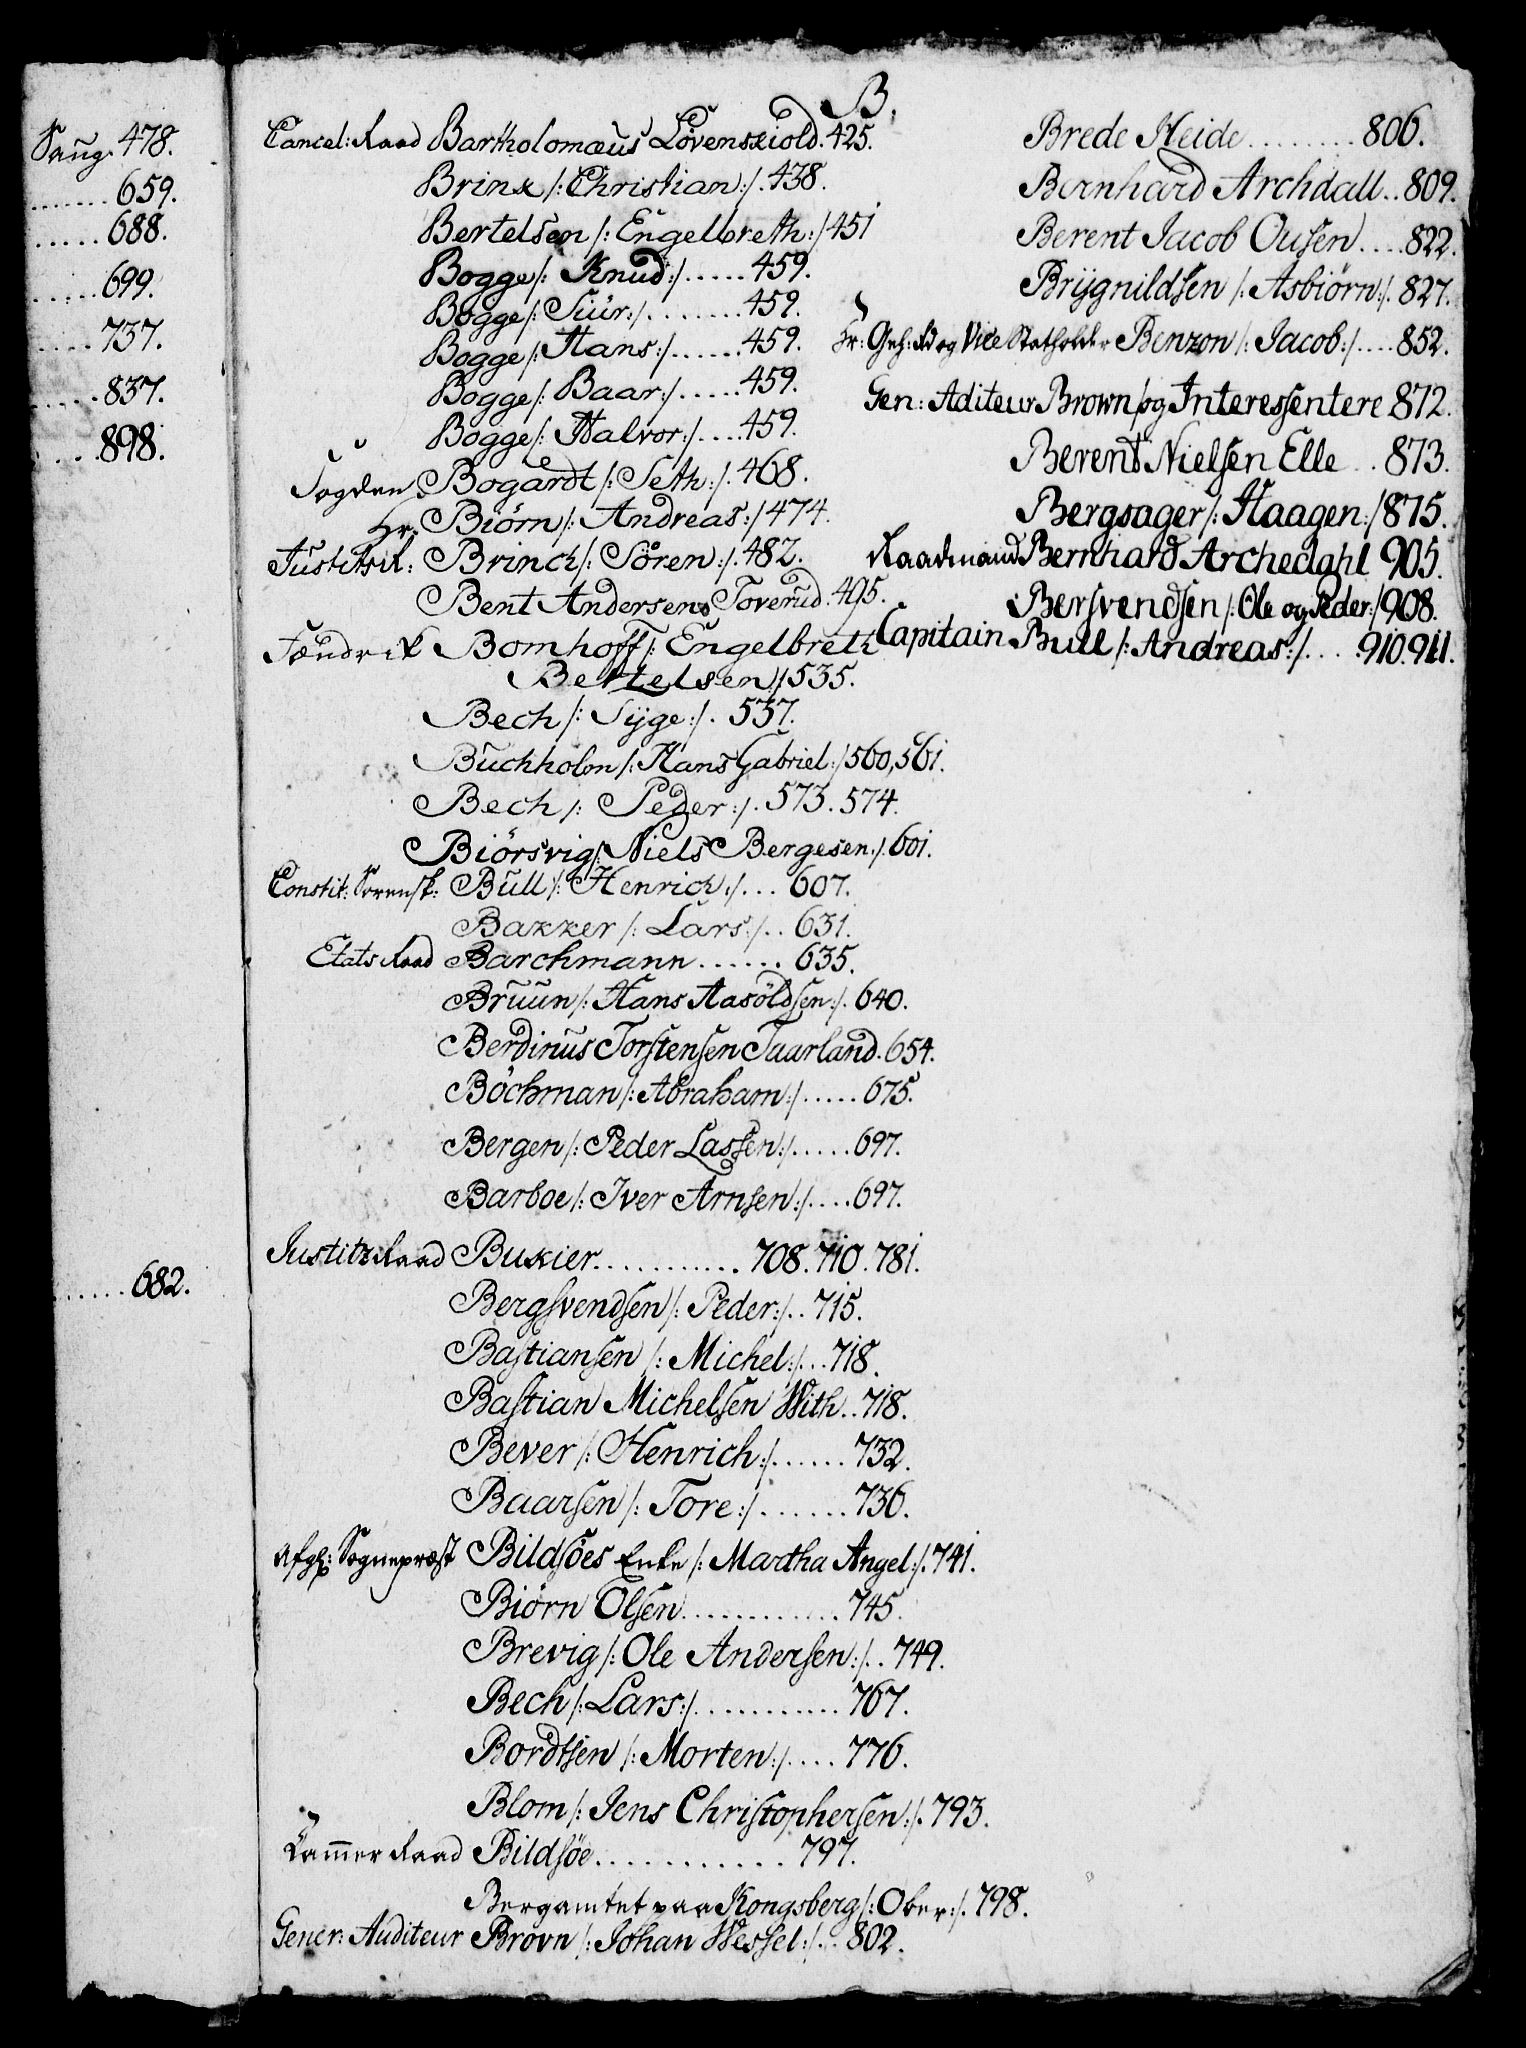 Saug. 478.
....... 659.
..... 688.
..... 699.
.... 737.
..... 837.
... 898.
...... 682.
B.
Cancel: Raad Bartholomæus Lövenskiold. 425.
Brinx /: Christian :/. 438.
Bertelsen /: Engelbreth :/ 451
Bogge /: Knud :/ ..... 459.
Bogge /: Siur :/ ........ 459.
Bogge /: Hans :/ ...... 459.
Bogge /: Baar :/ ..... 459.
Bogge /: Halvor :/ .... 459.
Fogden Bogardt /: Seth :/. 468.
Hr. Biörn /: Andreas :/ 474.
Justitsr: Brinck /: Sören :/. 482.
Bent Andersen Toverud. 495.
Fændrik Bomhoff /: Engelbreth
Bertelsen :/ 535.
Bech /: Syge :/. 537.
Buchholm /: Hans Gabriel :/ 560, 561.
Bech /: Peder :/. 573. 574.
Biörsvig /: Niels Bergesen :/. 601.
Constit: Sorensk: Bull /: Henrick :/... 607.
Bakker /: Lars :/.. 631.
Etats Raad Barchmann ...... 635.
Bruun /: Hans Aasöldsen :/. 640.
Berdinus Torstensen Taarland. 654.
Böchman /: Abraham :/ ..... 675.
Bergen /: Peder Lassen :/ ..... 697.
Barboe /: Iver Arnsen :/ .... 697.
Justitz Raad Buxier ........... 708. 710. 781.
Bergsvendsen /: Peder :/.. 715.
Bastiansen /: Michel :/... 718.
Bastian Michelsen With.. 718.
Bever /: Henrich :/ ...... 732.
Baarsen /: Tore :/ ....... 736.
Afg: Sognepræst Bildsöes Enke /: Martha Angel :/. 741.
Biörn Olsen ............ 745.
Brevig /: Ole Andersen :/.. 749.
Bech /: Lars :/ ........... 767.
Bordtsen /: Morten :/ .... 776.
Blom /: Jens Christophersen :/. 793.
Kammer Raad Bildsöe ............ 797.
Bergamtet paa Kongsberg /: Ober :/. 798.
Gener: Auditeur Brovn /: Johan Wessel :/.. 802.
Brede Heide ........ 806.
Bernhard Archdall.. 809.
Berent Jacob Ousen .... 822.
Brygnildsen /: Asbiörn :/. 827.
Hr: Geh: Rd og Vice Statholder Benzon /: Jacob :/ .... 852.
Gen: Aditeur Brown /og Interessentere 872.
Berent Nielsen Elle .. 873.
Bergsager /: Haagen :/ 875.
Raadmand Bernhard Archedahl 905.
Bersvendsen /: Ole og Peder :/ 908.
Capitain Bull /: Andreas :/ .... 910. 911.